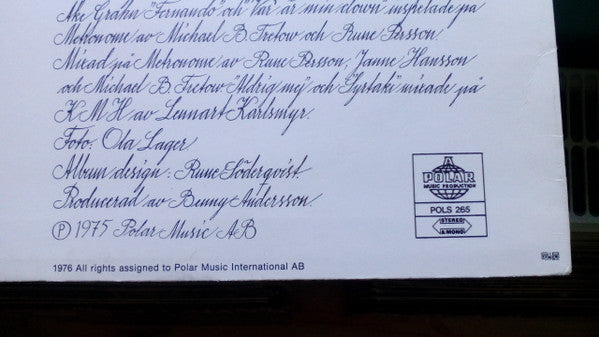 Åke Grahn "Fernando" och "Var är min clown" inspelade på
Metronome av Michael B. Tretow och Rune Persson.
Mixad på Metronome av Rune Persson, Janne Hansson
och Michael B. Tretow "Aldrig mej" och "Syrtaki" mixade på
KMH av Lennart Karlsmyr.
Foto: Ola Lager
Album design: Rune Söderqvist
Producerad av Benny Andersson.
Ⓟ 1975 Polar Music AB
1976 All rights assigned to Polar Music International AB
A
POLAR
MUSIC PRODUCTION
POLS 265
STEREO
& MONO